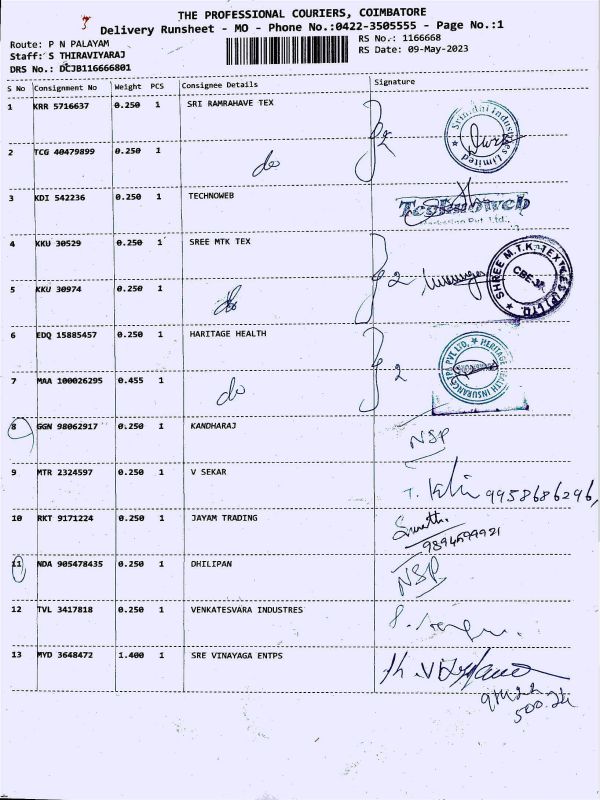 THE PROFESSIONAL COURIERS, COIMBATORE
Delivery Runsheet - MO - Phone No.:0422-3505555 - Page No.:1
Route: P N PALAYAM
RS No.: 1166668
Staff: S THIRAVIYARAJ
RS Date: 09-May-2023
DRS No.: DCJB116666801
S No Consignment No Weight PCS Consignee Details Signature
1 KRR 5716637 0.250 1 SRI RAMRAHAVE TEX
2 TCG 40479899 0.250 1 do
3 KDI 542236 0.250 1 TECHNOWEB
4 KKU 30529 0.250 1 SREE MTK TEX
5 KKU 30974 0.250 1 do
6 EDQ 15885457 0.250 1 HARITAGE HEALTH
7 MAA 100026295 0.455 1 do
8 GGN 98062917 0.250 1 KANDHARAJ NSP
9 MTR 2324597 0.250 1 V SEKAR 9958686296,
10 RKT 9171224 0.250 1 JAYAM TRADING
11 NDA 905478435 0.250 1 DHILIPAN NSP
12 TVL 3417818 0.250 1 VENKATESVARA INDUSTRES
13 MYD 3648472 1.400 1 SRE VINAYAGA ENTPS